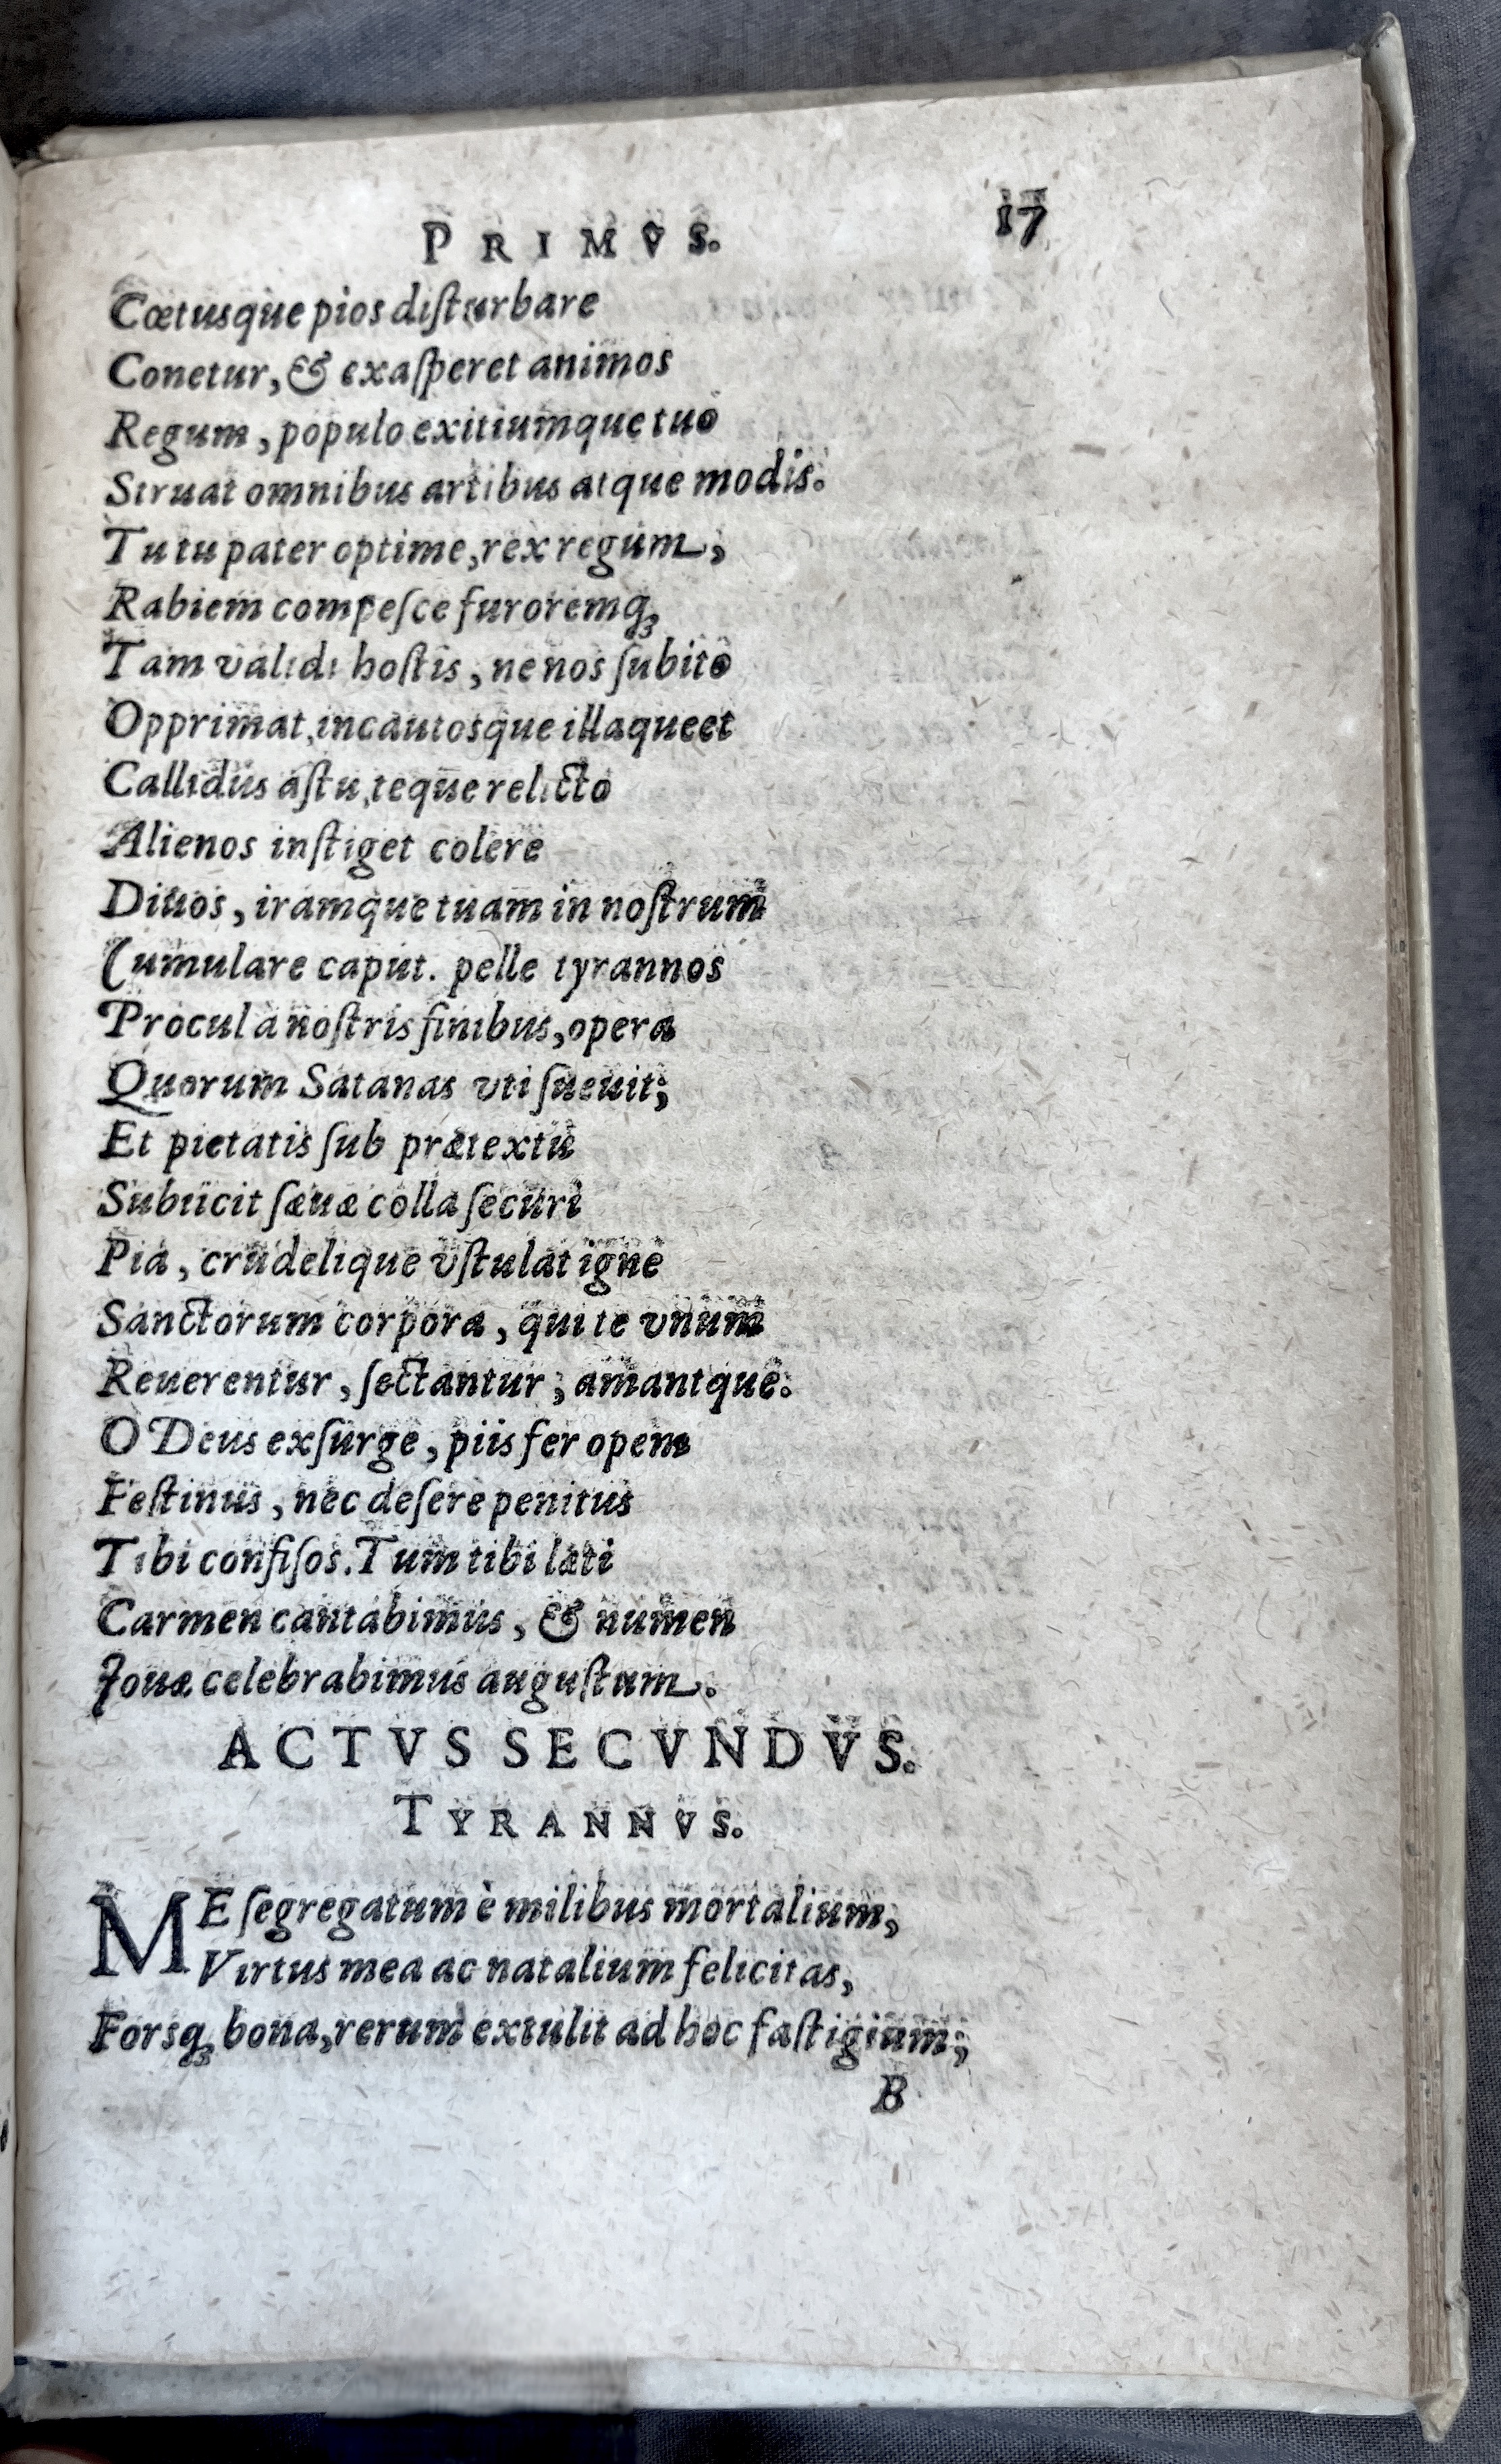 PRIMVS. 17
Cœtusque pios diſturbare
Conetur, & exaſperet animos
Regum, populo exitiumque tuo
Struat omnibus artibus atque modis.
Tu tu pater optime, rex regum,
Rabiem compeſce furoremq́;
Tam validi hoſtis, ne nos ſubito
Opprimat, incautosque illaqueet
Callidus aſtu, teque relicto
Alienos inſtiget colere
Diuos, iramque tuam in noſtrum
Cumulare caput. pelle tyrannos
Procul a noſtris finibus, opera
Quorum Satanas vti ſueuit;
Et pietatis ſub prætextu
Subiicit ſæuæ colla ſecuri
Pia, crudelique vſtulat igne
Sanctorum corpora, qui te vnum
Reuerentur, ſectantur, amantque.
O Deus exſurge, piis fer opem
Feſtinus, nec deſere penitus
Tibi confiſos. Tum tibi læti
Carmen cantabimus, & numen
Iouæ celebrabimus auguſtum.
ACTVS SECVNDVS.
TYRANNVS.
ME ſegregatum è milibus mortalium,
Virtus mea ac natalium felicitas,
Forsq; bona, rerum extulit ad hoc faſtigium;
B